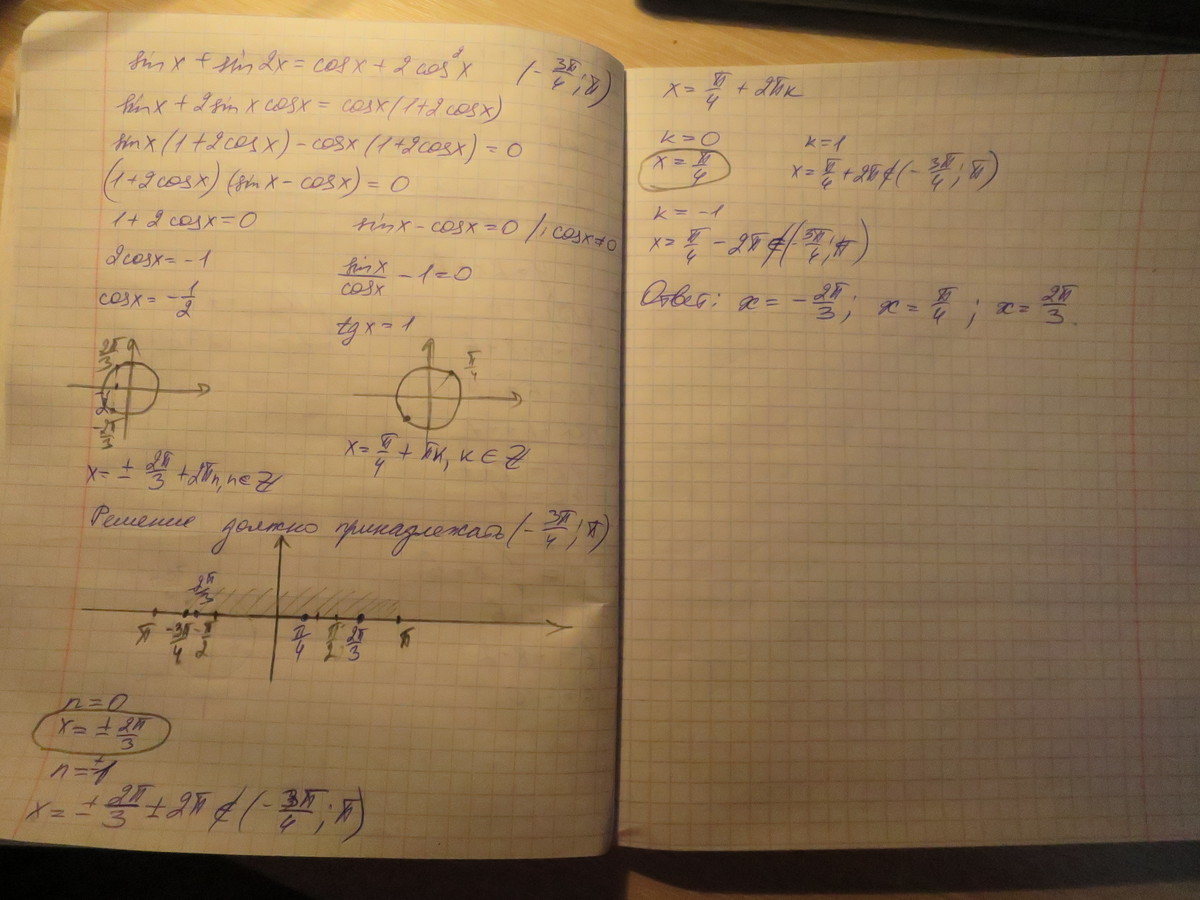 sin x + sin 2x = cos x + 2 cos² x (-3π/4; π)
sin x + 2 sin x cos x = cos x (1 + 2 cos x)
sin x (1 + 2 cos x) - cos x (1 + 2 cos x) = 0
(1 + 2 cos x) (sin x - cos x) = 0
1 + 2 cos x = 0
2 cos x = -1
cos x = -1/2
2π/3
-1/2
-2π/3
x = ± 2π/3 + 2πn, n ∈ Z
sin x - cos x = 0 /: cos x ≠ 0
sin x/cos x - 1 = 0
tg x = 1
π/4
x = π/4 + πk, k ∈ Z
Решение должно принадлежать (-3π/4; π)
2π/3
π -3π/4 -π/2 π/4 π/2 2π/3 π
n = 0
x = ± 2π/3
n = ±1
x = ± 2π/3 ± 2π ∉ (-3π/4; π)
x = π/4 + 2πk
k = 0
x = π/4
k = 1
x = π/4 + 2π ∉ (-3π/4; π)
k = -1
x = π/4 - 2π ∉ (-3π/4; π)
Ответ: x = -2π/3; x = π/4; x = 2π/3